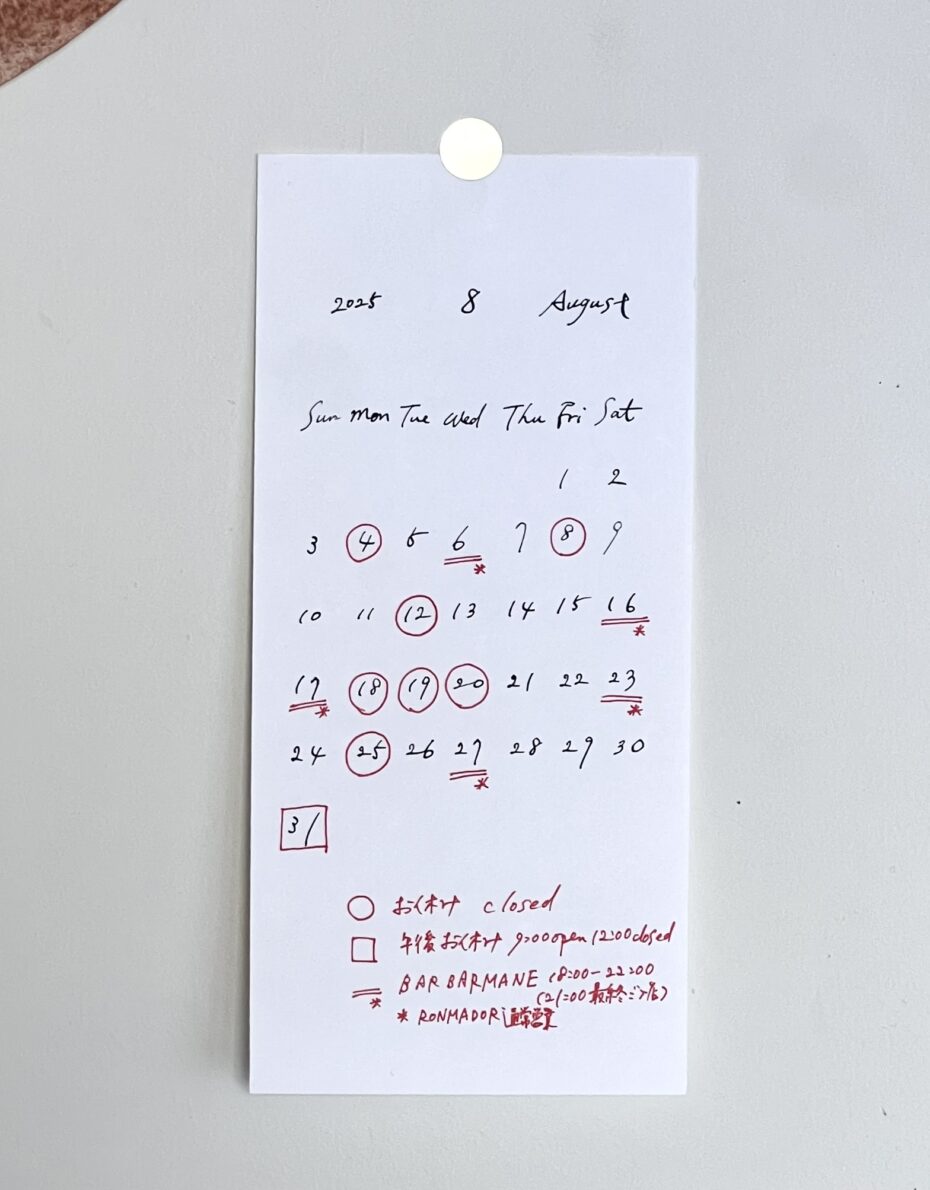 2025 8 August
Sun Mon Tue Wed Thu Fri Sat
1 2
3 4 5 6 7 8 9
*
10 11 12 13 14 15 16
*
17 18 19 20 21 22 23
* *
24 25 26 27 28 29 30
*
31
お休み closed
午後お休み 9:00open 12:00closed
BAR BARMANE 18:00-22:00
* (21:00最終ご入店)
* RONMADOR通常営業